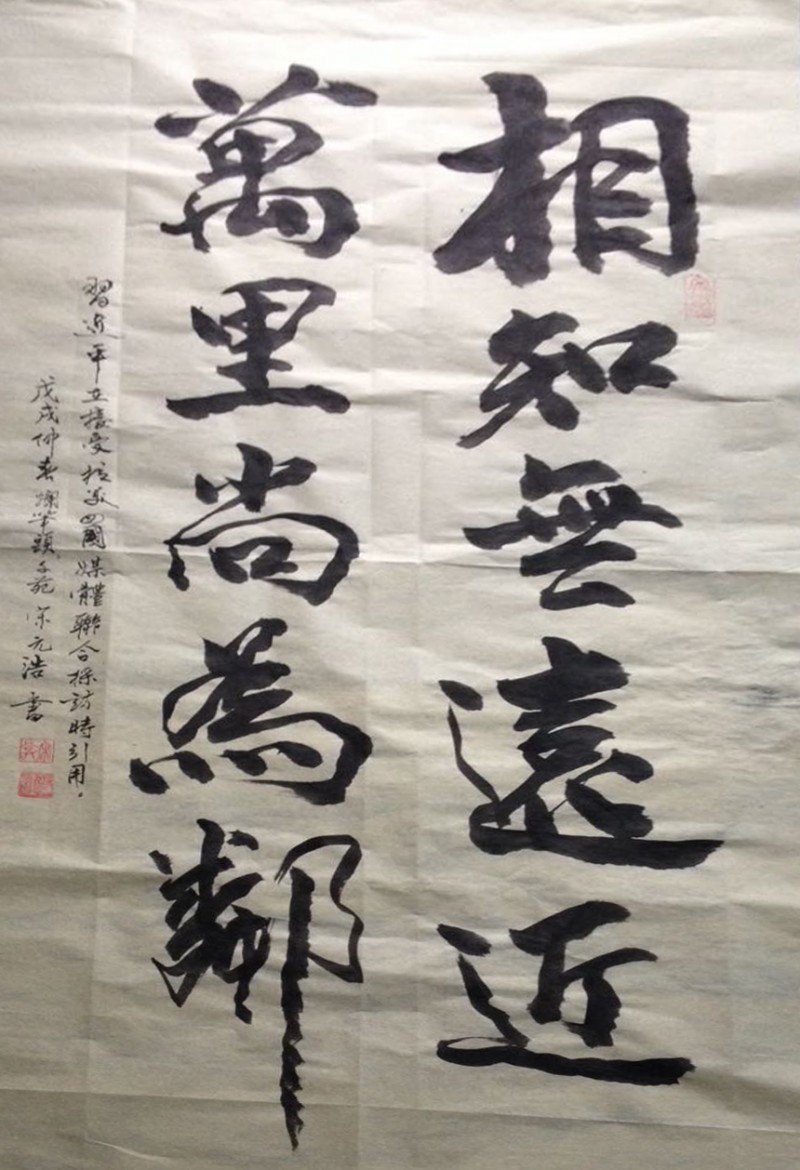 相知無遠近
萬里尚為鄰
習近平在接受拉美四國媒體聯合採訪時引用。
戊戌仲春 宋元浩書